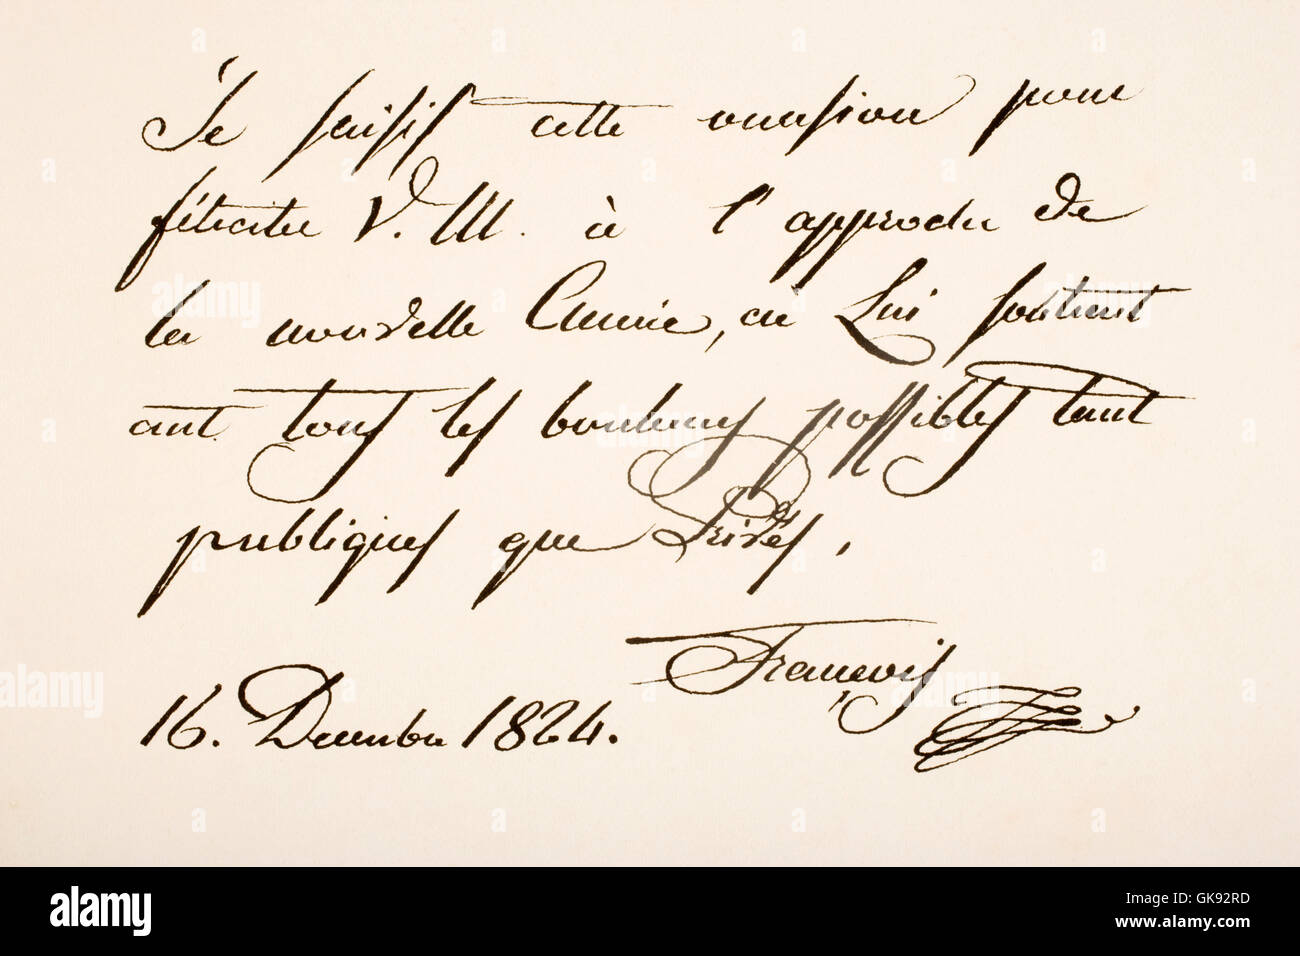 Je saisis cette occasion pour
féliciter V. M. à l'approche de
la nouvelle Année, en Lui souhait
ant tous les bonheurs possibles tant
publiques que Privés,
François
16. Decembre 1824.
alamy
Image ID: GK92RD
www.alamy.com